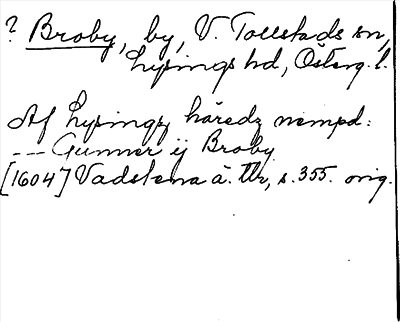 ? Broby, by, V. Tollstads sn,
Lysings hd, Österg. l.
Af Lysingz häredz nempd:
--- Gunner ij Broby
[1604] Vadstena ä. Tbr, s. 355. orig.